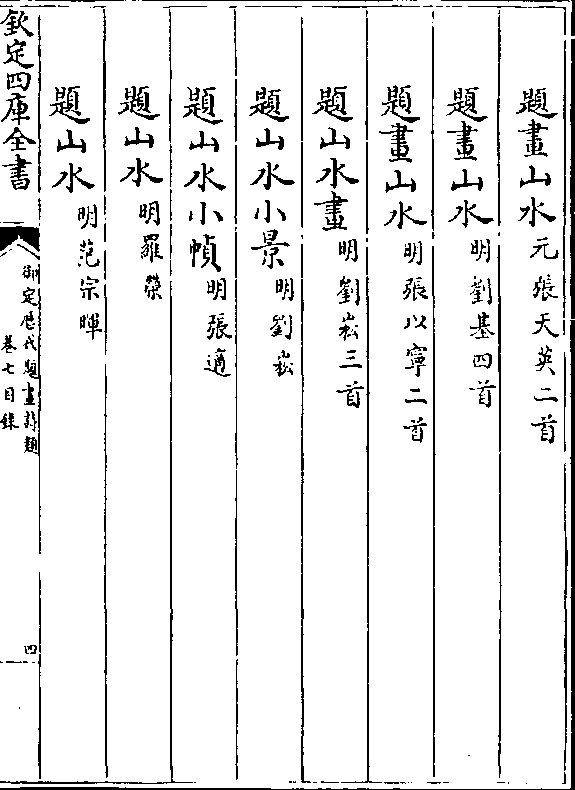 題畫山水元張天英二首
題畫山水明劉基四首
題畫山水明張以寧二首
題山水畫明劉崧三首
題山水小景明劉崧
題山水小幀明張適
題山水明羅榮
題山水明范宗暉
欽定四庫全書
御定歴代題畫詩類
卷七目録
四